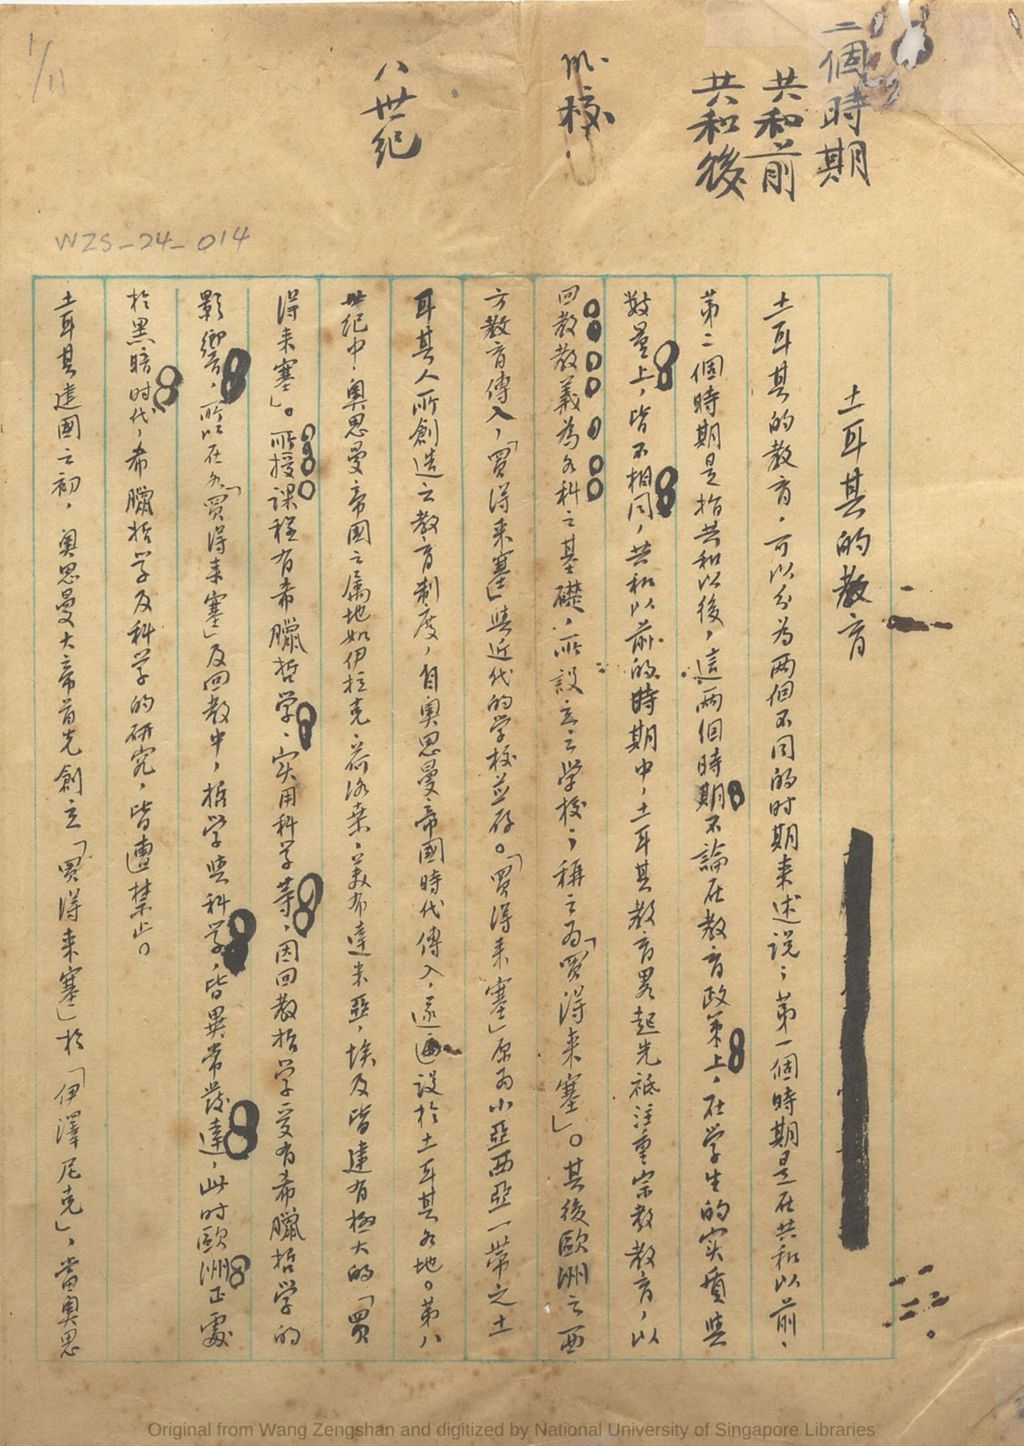 1/11
二個時期
共和前
共和後
八世紀
WZS-24-014
土耳其的教育
土耳其的教育，可以分為兩個不同的时期来述说；第一個時期是在共和以前，
第二個時期是指共和以後，這兩個時期不論在教育政策上，在学生的实質與
数量上，皆不相同，共和以前的時期中，土耳其教育畧起先祗注重宗教教育，以
回教教義為各科之基礎，所設立之学校；稱之為「買得来塞」。其後歐洲之西
方教育傳入，「買得来塞」與近代的学校並存。「買得来塞」原為小亞西亞一带之土
耳其人所創造之教育制度，自奥思曼帝國時代傳入，遂遍設於土耳其各地。第八
世纪中，奥思曼帝國之属地如伊拉克、美布達米亞，埃及皆建有極大的「買
得来塞」。所授課程有希臘哲学、实用科学等，因回教哲学受有希臘哲学的
影響，所以在各「買得来塞」及回教中，哲学與科学，皆異常發達，此时歐洲正處
於黑暗时代，希臘哲学及科学的研究，皆遭禁止。
土耳其建國之初，奥思曼大帝首先創立「買得来塞」於「伊澤尼克」，當奥思
Original from Wang Zengshan and digitized by National University of Singapore Libraries